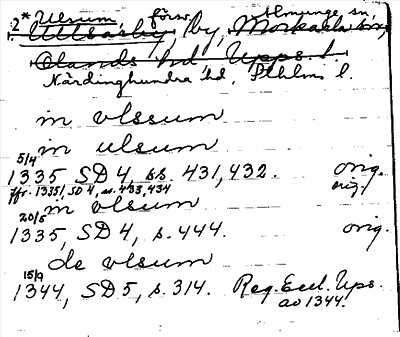 2* Ulsum, försv. Almunge sn,
Ullsarby, by, Morkarla sn,
Olands hd Upps. l.
Närdinghundra hd, Sthlms l.
in vlssum
in ulsum
5/4
1335 SD 4, ss. 431, 432. orig.
Jfr. 1335/ SD 4, ss. 433, 434 orig.
in vlsum
20/5
1335, SD 4, s. 444. orig.
de vlsum
15/9
1344, SD 5, s. 314. Reg. Eccl. Ups.
av 1344.